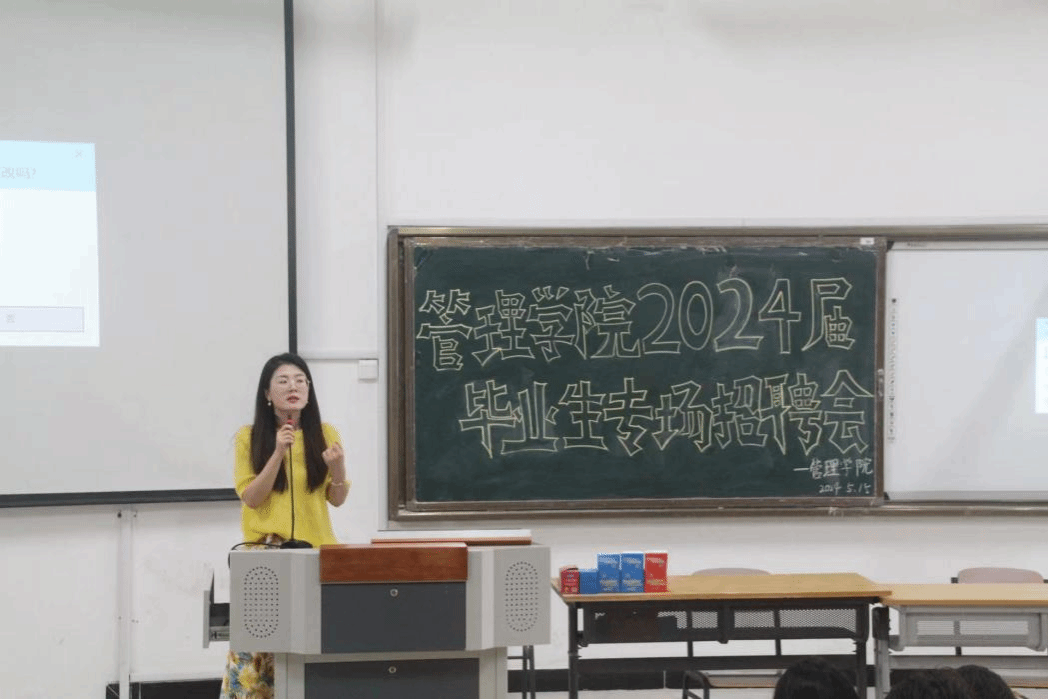 改吗?
管理学院2024届
毕业生专场招聘会
—管理学院
2024.5.15